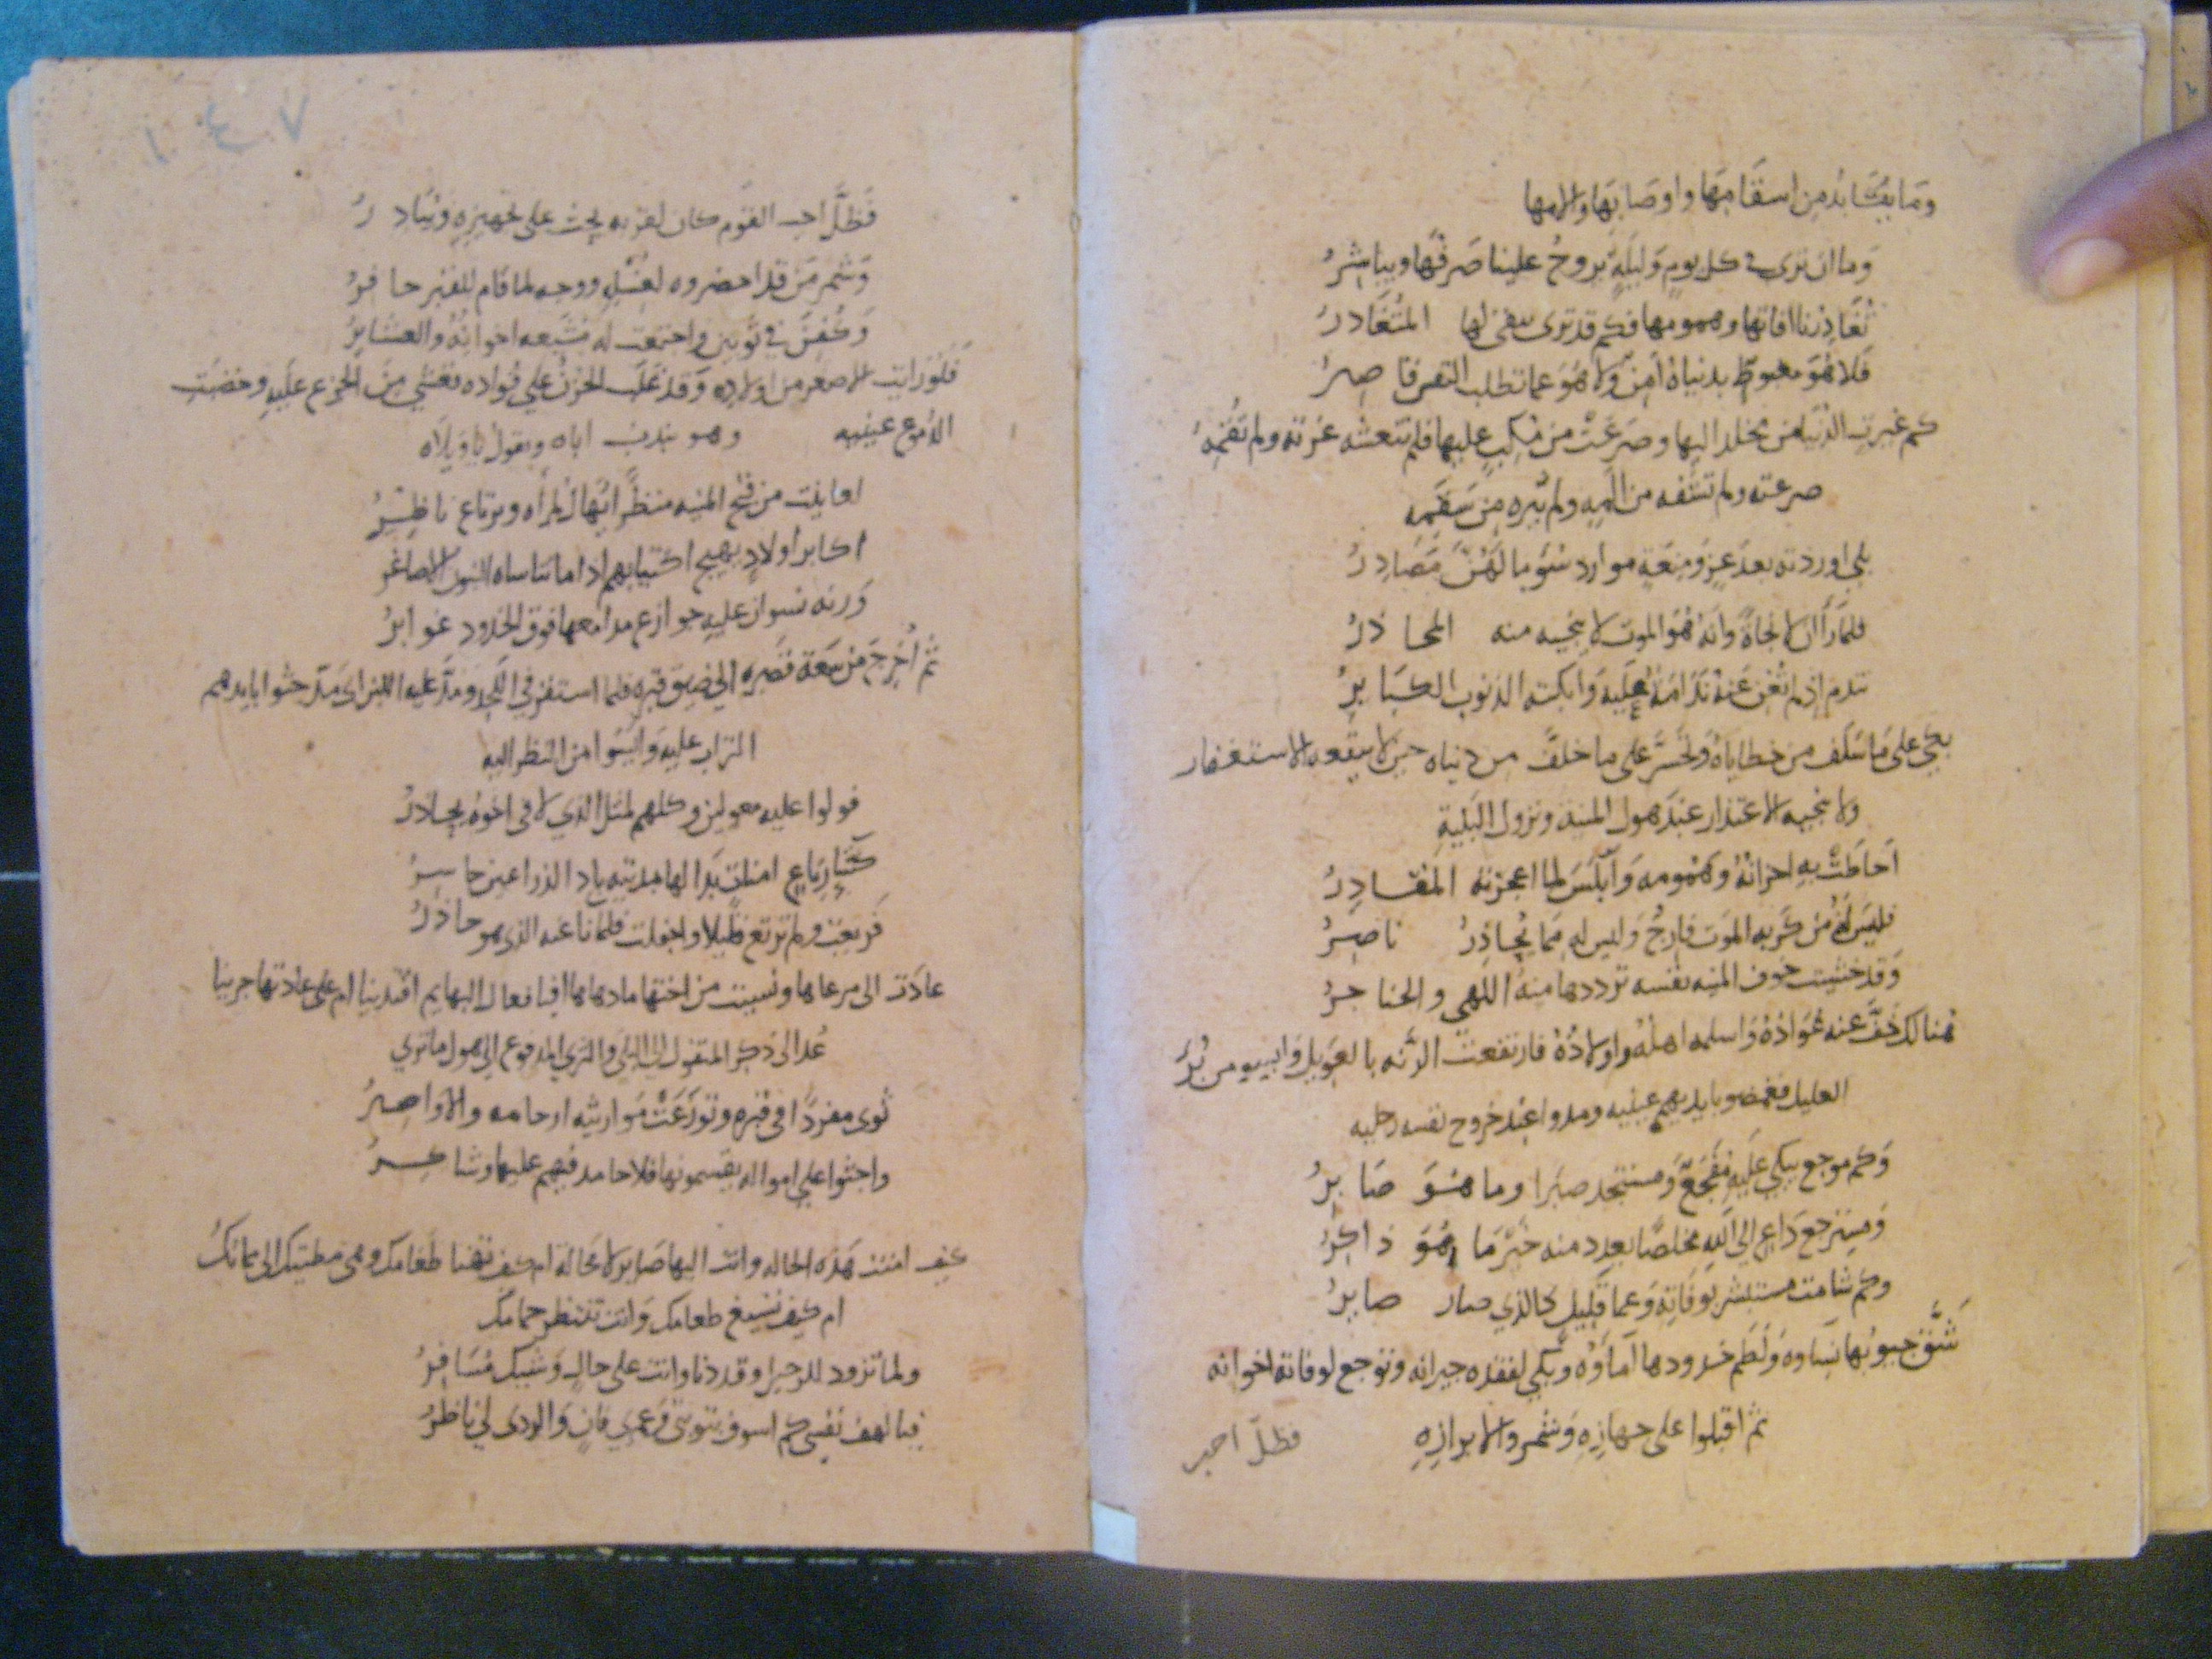 وما يكابد من اسقامها واوصابها والامها
وما ان نرى في كل يوم وليلة يروح علينا صرفها ويباشر
تغادرنا افاتها وهمومها فكم قد ترى يبقى لها المتغادر
فلا هو مغبوط بدنياه امن ولا هو عما تطلب النفس قاصر
كم غيرت الدنيا من مخلد اليها وصرعت من مكب عليها فلم تنعشه عزته ولم تقمه
صرعته ولم تشفه من المه ولم تبره من سقمه
بلى اوردته بعد عز ومنعة موارد سوء ما لهن مصادر
فلما رأى ان لا نجاة وانه هو الموت لا ينجيه منه المحاذر
تندم اذ لم تغن عنه ندامة عليه وابكته الذنوب الكبائر
بكى على ما سلف من خطاياه وتحسر على ما خلف من دنياه حين لا ينفعه الاستغفار
ولا ينجيه الاعتذار عند هول المنية ونزول البلية
احاطت به احزانه وهمومه وابلس لما اعجزته المقادر
فليس له من كربه الموت فارج وليس له مما يحاذر ناصر
وقد خشيت خوف المنيه نفسه ترددها منه اللهى والحناجر
هنالك خف عنه عواده واسلمه اهله واولاده فارتفعت الرنه بالعويل وايسو من برء
العليل فغمضو بايديهم عينيه ومدوا عند خروج نفسه رجليه
وكم موجع يبكي عليه مفجع ومستنجد صبرا وما هو صابر
ومسترجع داع الى الله مخلصا يعدد منه خير ما هو ذاكر
وكم شامت مستبشر بوفاته وعما قليل كالذي صار صابر
شقق جيوبها نساوه ولطم خدودها اماؤه وبكى لفقده جيرانه وتوجع لوفاته اخوانه
ثم اقبلوا على جهازه وشمروا لابرازه
فظل احب
١٠٤٧
فظل احب القوم كان لقربه يحث على تجهيزه ويبادر
وشمر من قد احضروه لغسله ووجه لما قام للقبر حافر
وكفن في ثوبين واجتمعت له مشيعه اخوانه والعشاير
فلو رايت الاصغر من اولاده وقد غلب الحزن على فواده يغشى من الجزع عليه وخضبت
الدموع عينيه وهو يندب اباه ويقول ياويلاه
لعاينت من قبح المنيه منظرا يهال لمراه ويرتاع ناظر
اكابر اولاد يهيج اكتيابهم اذا ما تناساه البنون الاصاغر
ورنه نسوان عليه جوازع مدامعها فوق الخدود غوابر
ثم أخرج من سعة قصره الى ضيق قبره فلما استقر في اللحد ومد عليه اللبن حثوا بايديهم
التراب عليه وايسوا من النظر اليه
فولوا عليه معولين وكلهم لمثل الذي لاقى اخوه يحاذر
كشاء رتاع امنات بدا لها بمديته باد الذراعين حاسر
فريعت ولم ترتع قليلا واجفلت فلما ناعنه الذي هو حاذر
عادت الى مرعاها ونسيت من اختها ما دهاها افبافعال البهايم اقتدينا ام على عادتها جرينا
عد الى ذكر المنقول الى البلى والثرى المدفوع الى هول ما ترى
ثوى مفردا في قبره وتوزعت مواريثه ارحامه والاواصر
واحثوا على امواله يقسمونها فلا حامد فيهم عليها وشاكر
كيف امنت هذه الحاله وانت اليها صاير لا محالة ام كيف تهنا طعامك وهي مطيتك الى مماتك
ام كيف تسيغ طعامك وانت تنتظر حمامك
ولما تزود للرحيل وقد دنا وانت على حال وشيك مسافر
فيا لهف نفسي كم اسوف بتوبتي وعمري فان والردى لي ناظر